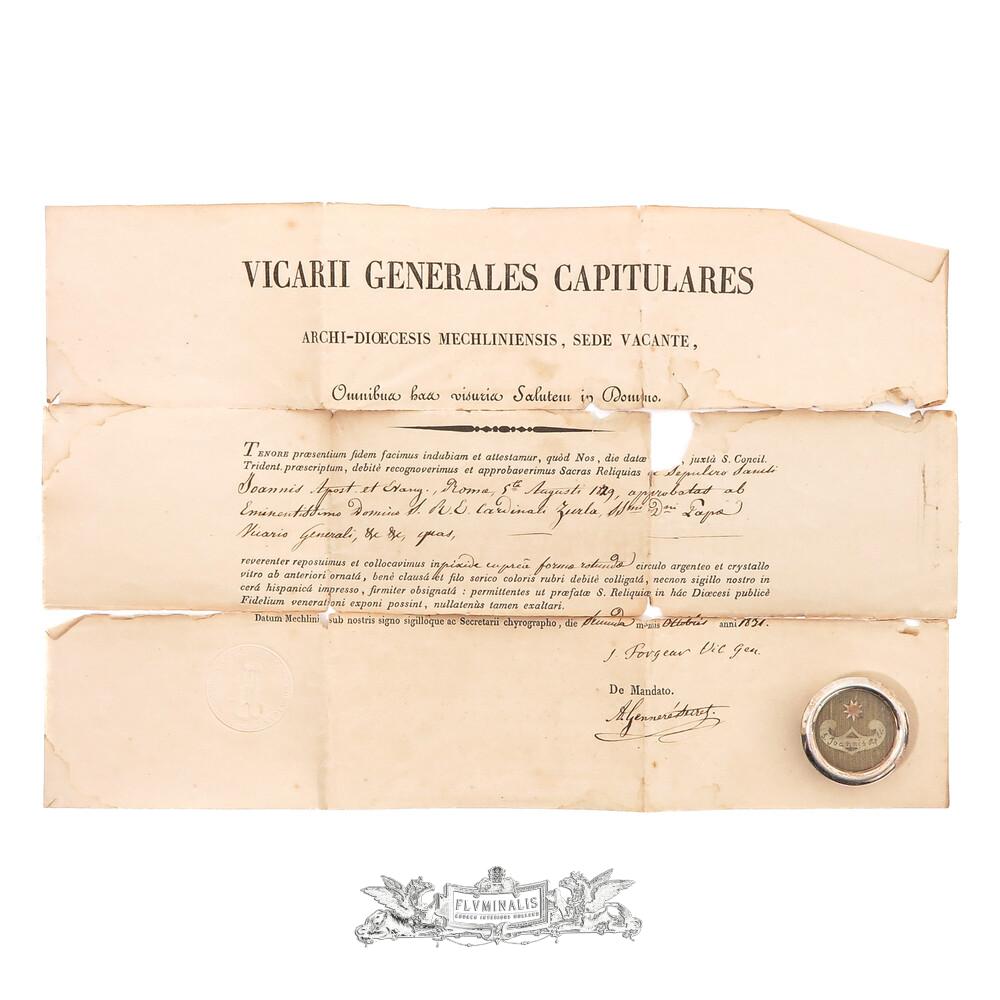 VICARII GENERALES CAPITULARES
ARCHI-DIŒCESIS MECHLINIENSIS, SEDE VACANTE,
Omnibus has visuris Salutem in Domino.
TENORE præsentium fidem facimus indubiam et attestamur, quòd Nos, die datæ juxtà S. Concil.
Trident. præscriptum, debitè recognoverimus et approbaverimus Sacras Reliquias de Sepulcro Sancti
Joannis Apost. et Evang., Romæ, 5ta Augusti 1829, approbatas ab
Eminentissimo Domino S. R. E. Cardinali Zurla, SSmi Dni Papæ
Vicario Generali, &c &c, quas,
reverenter reposuimus et collocavimus in pixide cupreâ formæ rotundæ circulo argenteo et crystallo
vitro ab anteriori ornatâ, benè clausâ et filo serico coloris rubri debitè colligatâ, necnon sigillo nostro in
cerâ hispanicâ impresso, firmiter obsignatâ : permittentes ut præfatæ S. Reliquiæ in hâc Diœcesi publicè
Fidelium venerationi exponi possint, nullatenùs tamen exaltari.
Datum Mechlini sub nostris signo sigilloque ac Secretarii chyrographo, die secunda mensis Octobris anni 1831.
J. Forgeur Vic Gen.
De Mandato.
S. Joannis Ap. Ev.
FLVMINALIS
CHURCH INTERIORS HOLLAND